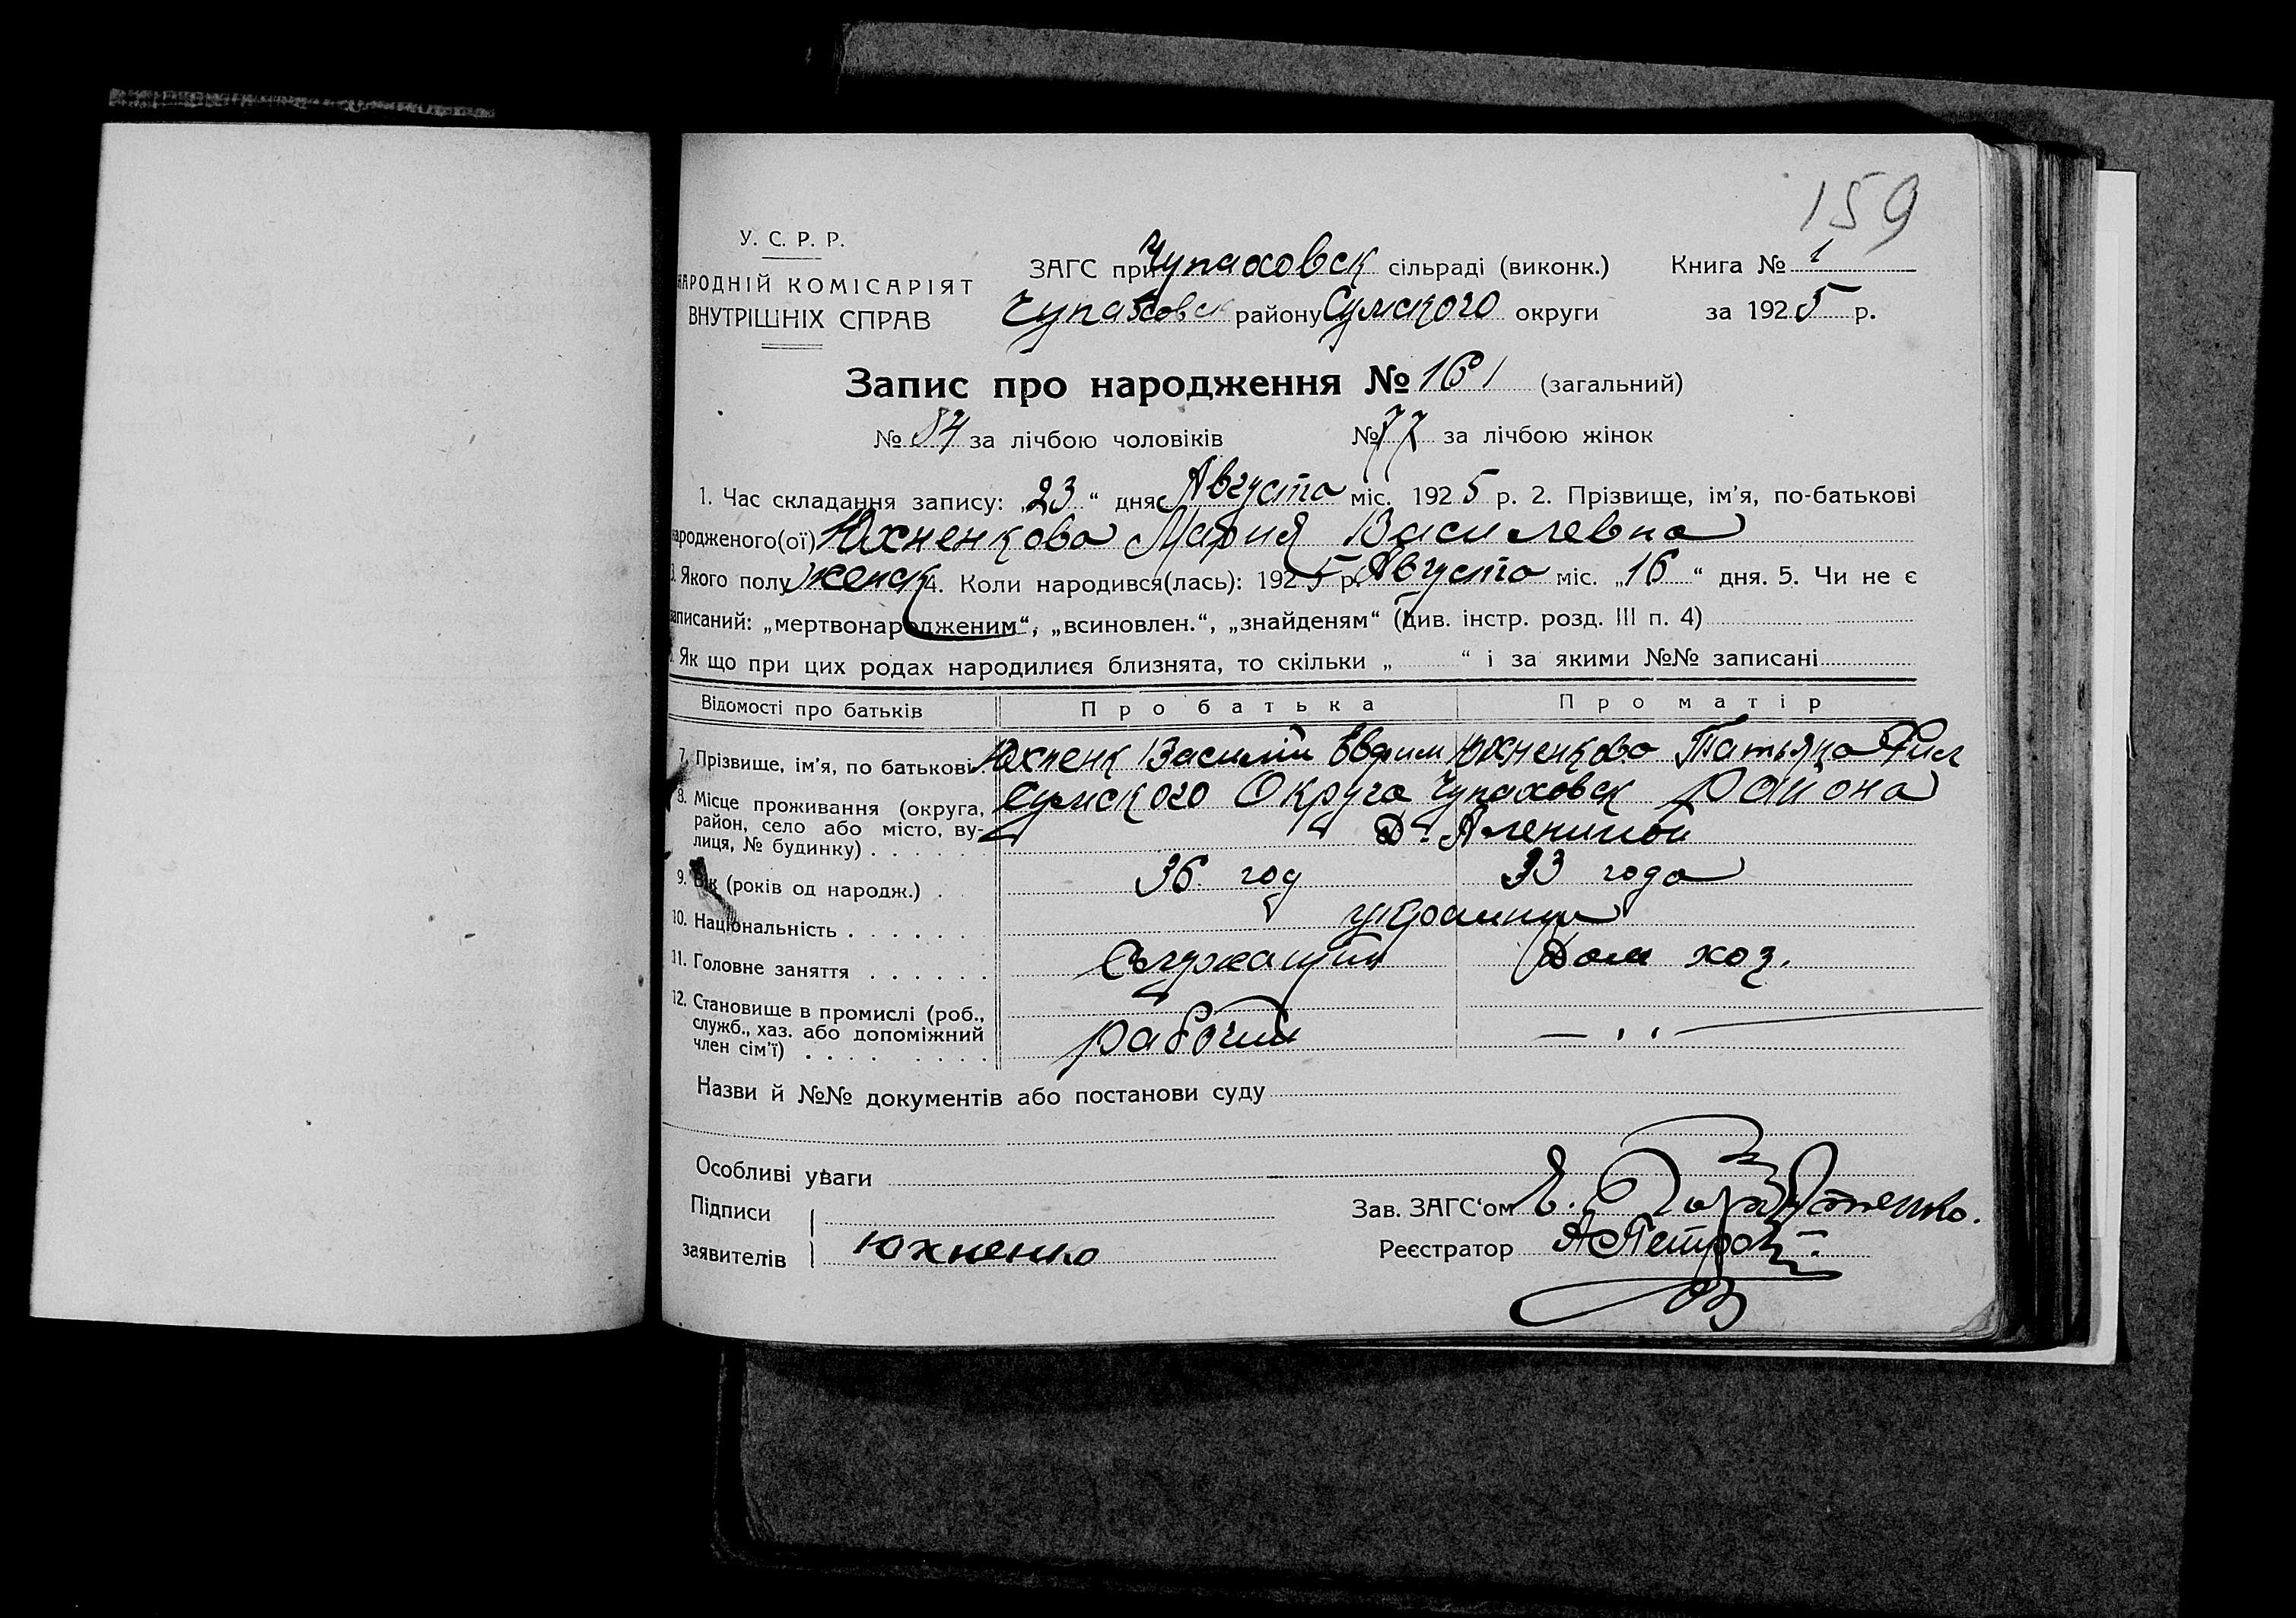 159
У. С. Р. Р.
НАРОДНІЙ КОМІСАРІЯТ
ВНУТРІШНІХ СПРАВ
ЗАГС при Чупаховск сільраді (виконк.)
Чупаховск району Сумского округи
Книга № 1
за 1925 р.
Запис про народження № 161 (загальний)
№ 84 за лічбою чоловіків № 77 за лічбою жінок
1. Час складання запису: „23“ дня Августа міс. 1925 р. 2. Прізвище, ім’я, по-батькові
народженого(ої) Юхненкова Мария Василевна
3. Якого полу женск 4. Коли народився(лась): 1925 р. Августа міс. „16“ дня. 5. Чи не є
записаний: „мертвонародженим“, „всиновлен.“, „знайденям“ (див. інстр. розд. III п. 4)
6. Як що при цих родах народилися близнята, то скільки „ “ і за якими №№ записані
Відомості про батьків Про батька Про матір
7. Прізвище, ім’я, по батькові. Юхненк Василий Евфим Юхненкова Татьяна Фил
8. Місце проживання (округа, район, село або місто, вулиця, № будинку) Сумского Округа Чупаховск района
Д.
9. Вік (років од народж.) 36 год 33 года
10. Національність украинцы
11. Головне заняття Служащий Дом хоз.
12. Становище в промислі (роб., служб., хаз. або допоміжний член сім’ї) рабочий
Назви й №№ документів або постанови суду
Особливі уваги
Підписи
заявителів Юхненко
Зав. ЗАГС‘ом
Реєстратор